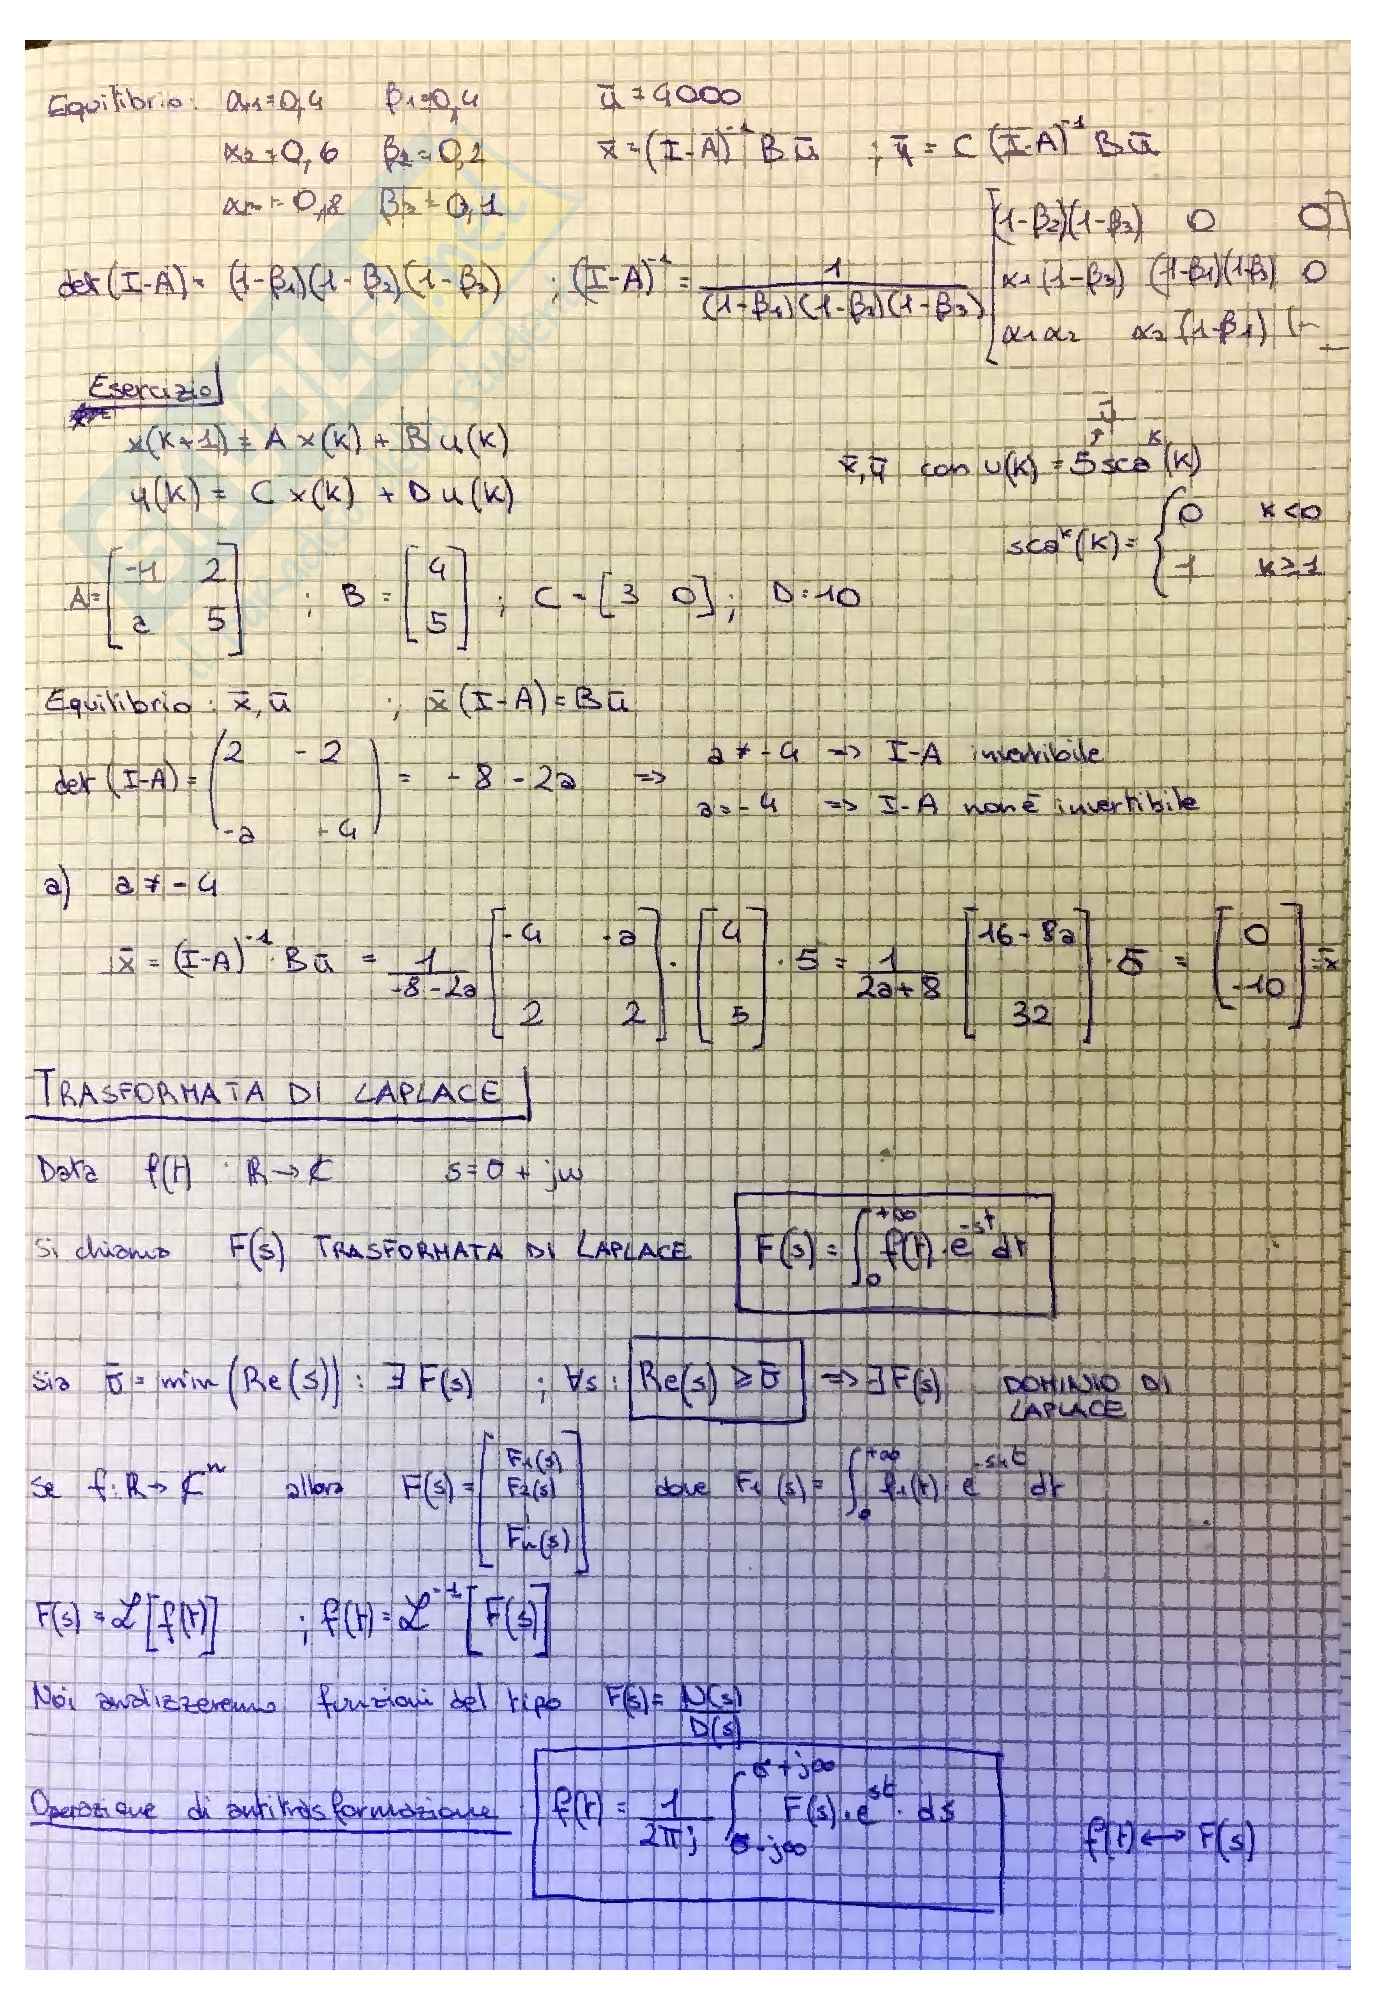 Equilibrio: α1=0,4 β1=0,4 ū=4000
α2=0,6 β2=0,2 x̄=(I-A)⁻¹Bū ; ȳ=C(I-A)⁻¹Bū
0,8 0,1
det(I-A)=(1-β1)(1-β2)(1-β3) ; (I-A)⁻¹= 1/((1-β1)(1-β2)(1-β3)) [(1-β2)(1-β3) 0 0
α1(1-β3) (1-β1)(1-β3) 0
α1α2 α2(1-β1)
Esercizio
x(k+1)=Ax(k)+Bu(k)
y(k)=Cx(k)+Du(k)
x̄,ȳ con u(k)=5scaᵏ(k)
ū
scaᵏ(k)={0 k<0
1 k≥1
A=[-1 2
a 5] ; B=[4
5] ; C=[3 0]; D=10
Equilibrio: x̄,ū ; x̄(I-A)=Bū
det(I-A)=(2 -2
-a -4) = -8-2a => a≠-4 => I-A invertibile
a=-4 => I-A non è invertibile
a) a≠-4
x̄=(I-A)⁻¹·Bū = 1/(-8-2a) [-4 -a
2 2]·[4
5]·5 = 1/(2a+8) [16-8a
32]·5 = [0
-10]=x̄
TRASFORMATA DI LAPLACE
Data f(t): R→C s=σ+jω
Si chiama F(s) TRASFORMATA DI LAPLACE F(s)=∫₀^{+∞} f(t)·e^{-st}dt
Sia σ̄=min(Re(s)): ∃F(s) ; ∀s: Re(s)≥σ̄ => ∃F(s) DOMINIO DI
LAPLACE
Se f:R→Cⁿ allora F(s)=[F1(s)
F2(s)
Fn(s)] dove F1(s)=∫₀^{+∞} f1(t) e dt
F(s)=ℒ[f(t)] ; f(t)=ℒ⁻¹[F(s)]
Noi analizzeremo funzioni del tipo F(s)=N(s)/D(s)
Operazione di antitrasformazione f(t)= 1/(2πj) ∫_{σ-j∞}^{σ+j∞} F(s)·e^{st}·ds
f(t)↔F(s)